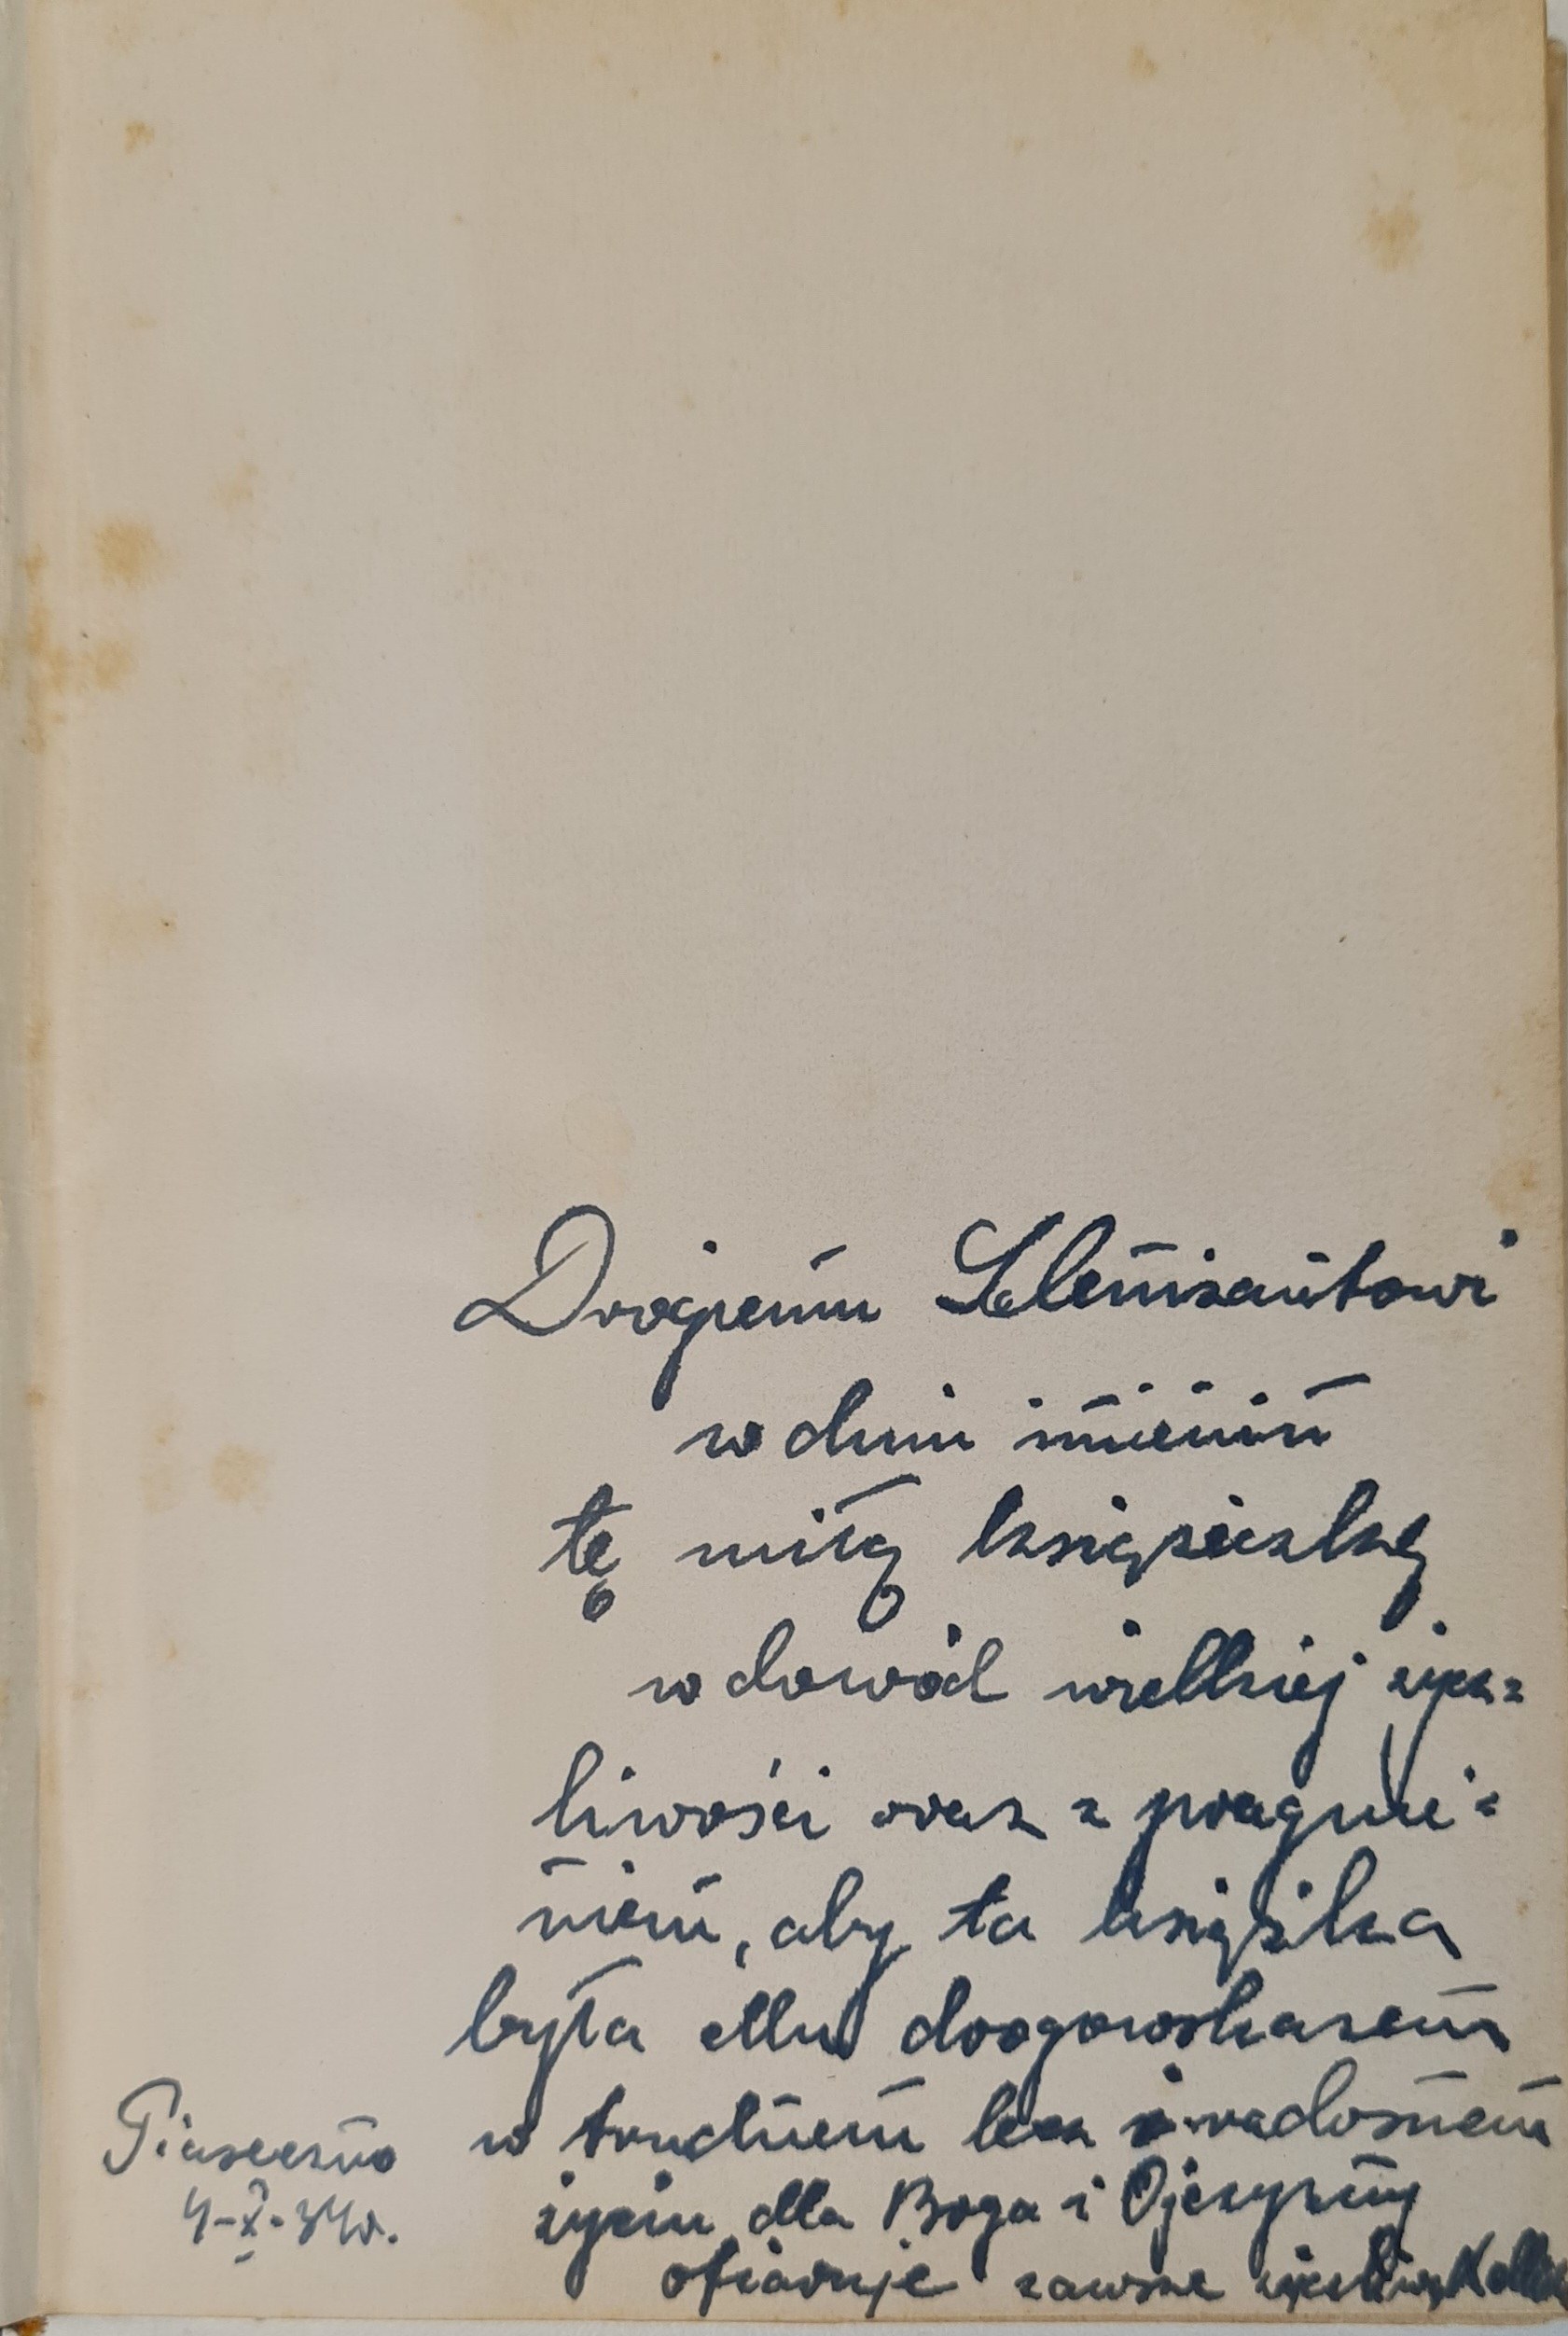 Drogiemu Solenizantowi
w dniu imienin
tę miłą książeczkę
w dowód wielkiej życz=
liwości oraz z pragnie=
niem, aby ta książka
była Mu drogowskazem
w trudnem lecz i radosnem
życiu dla Boga i Ojczyzny
ofiaruje zawsze życzliwy
Piaseczno
4-X-34r.